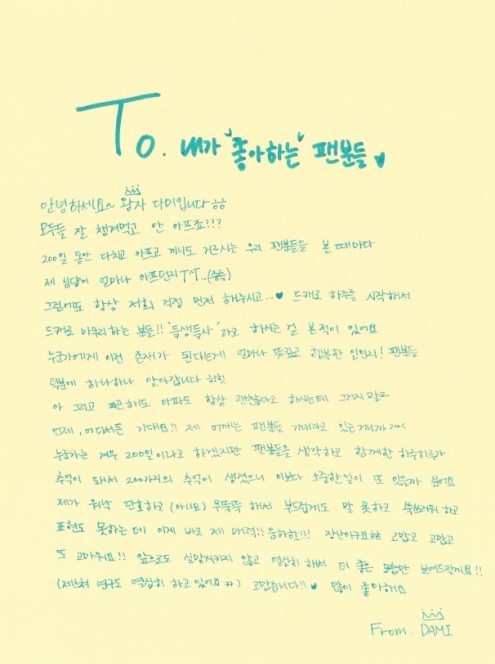 To. 내가 '좋아하는' 팬분들 ♥
안녕하세요~ 왕자 다미입니다 ㅎㅎ
모두들 잘 챙겨먹고 안 아프죠???
200일 동안 다치고 아프고 끼니도 거르시는 우리 팬분들을 볼 때마다
제 심장이 얼마나 아프던지 T^T..(슥슥)
그럼에도 항상 저희 걱정 먼저 해주시고...♥ 드캐로 하루를 시작해서
드캐로 마무리하는 분들!! '득생득사' 라고 하시는 걸 본적이 있어요
누군가에게 이런 존재가 된다는게 얼마나 뜻깊고 행복한 일인지! 팬분들
덕분에 하나하나 알아갑니다 히힛
아 그리고 피곤해도 아파도 항상 괜찮다고 하시는데 그러지 말고
언제, 어디서든 기대요!! 제 어깨는 팬분들 기대라고 있는거니까
누군가는 겨우 200일이라고 하겠지만 팬분들을 생각하고 함께한 하루하루가
추억이 돼서 200가지의 추억이 생겼으니 이보다 소중한일이 또 있을까 싶어요
제가 워낙 단호하고 (아니요) 무뚝뚝 해서 부드럽게도 말 못하고 쑥쓰러워 하고
표현도 못하는데 이게 바로 제 매력!! 음하핫!!! 장난이구요 고맙고 고맙고
또 고마워요!! 앞으로도 실망시키지 않고 열심히 해서 더 좋은 모습만 보여드릴게요!!
(제스쳐 연구도 열심히 하고 있어요 ㅠㅠ) 고맙습니다!!♥ 많이 좋아해요
From. DAMI